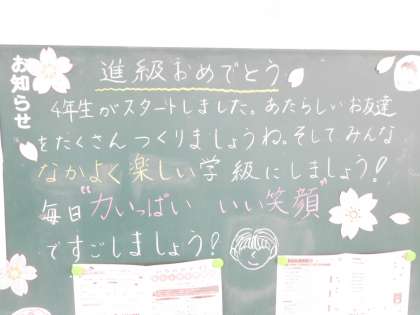 お知らせ
進級おめでとう
4年生がスタートしました。あたらしいお友達
をたくさんつくりましょうね。そしてみんな
なかよく楽しい学級にしましょう!
毎日"力いっぱい いい笑顔"
ですごしましょう!